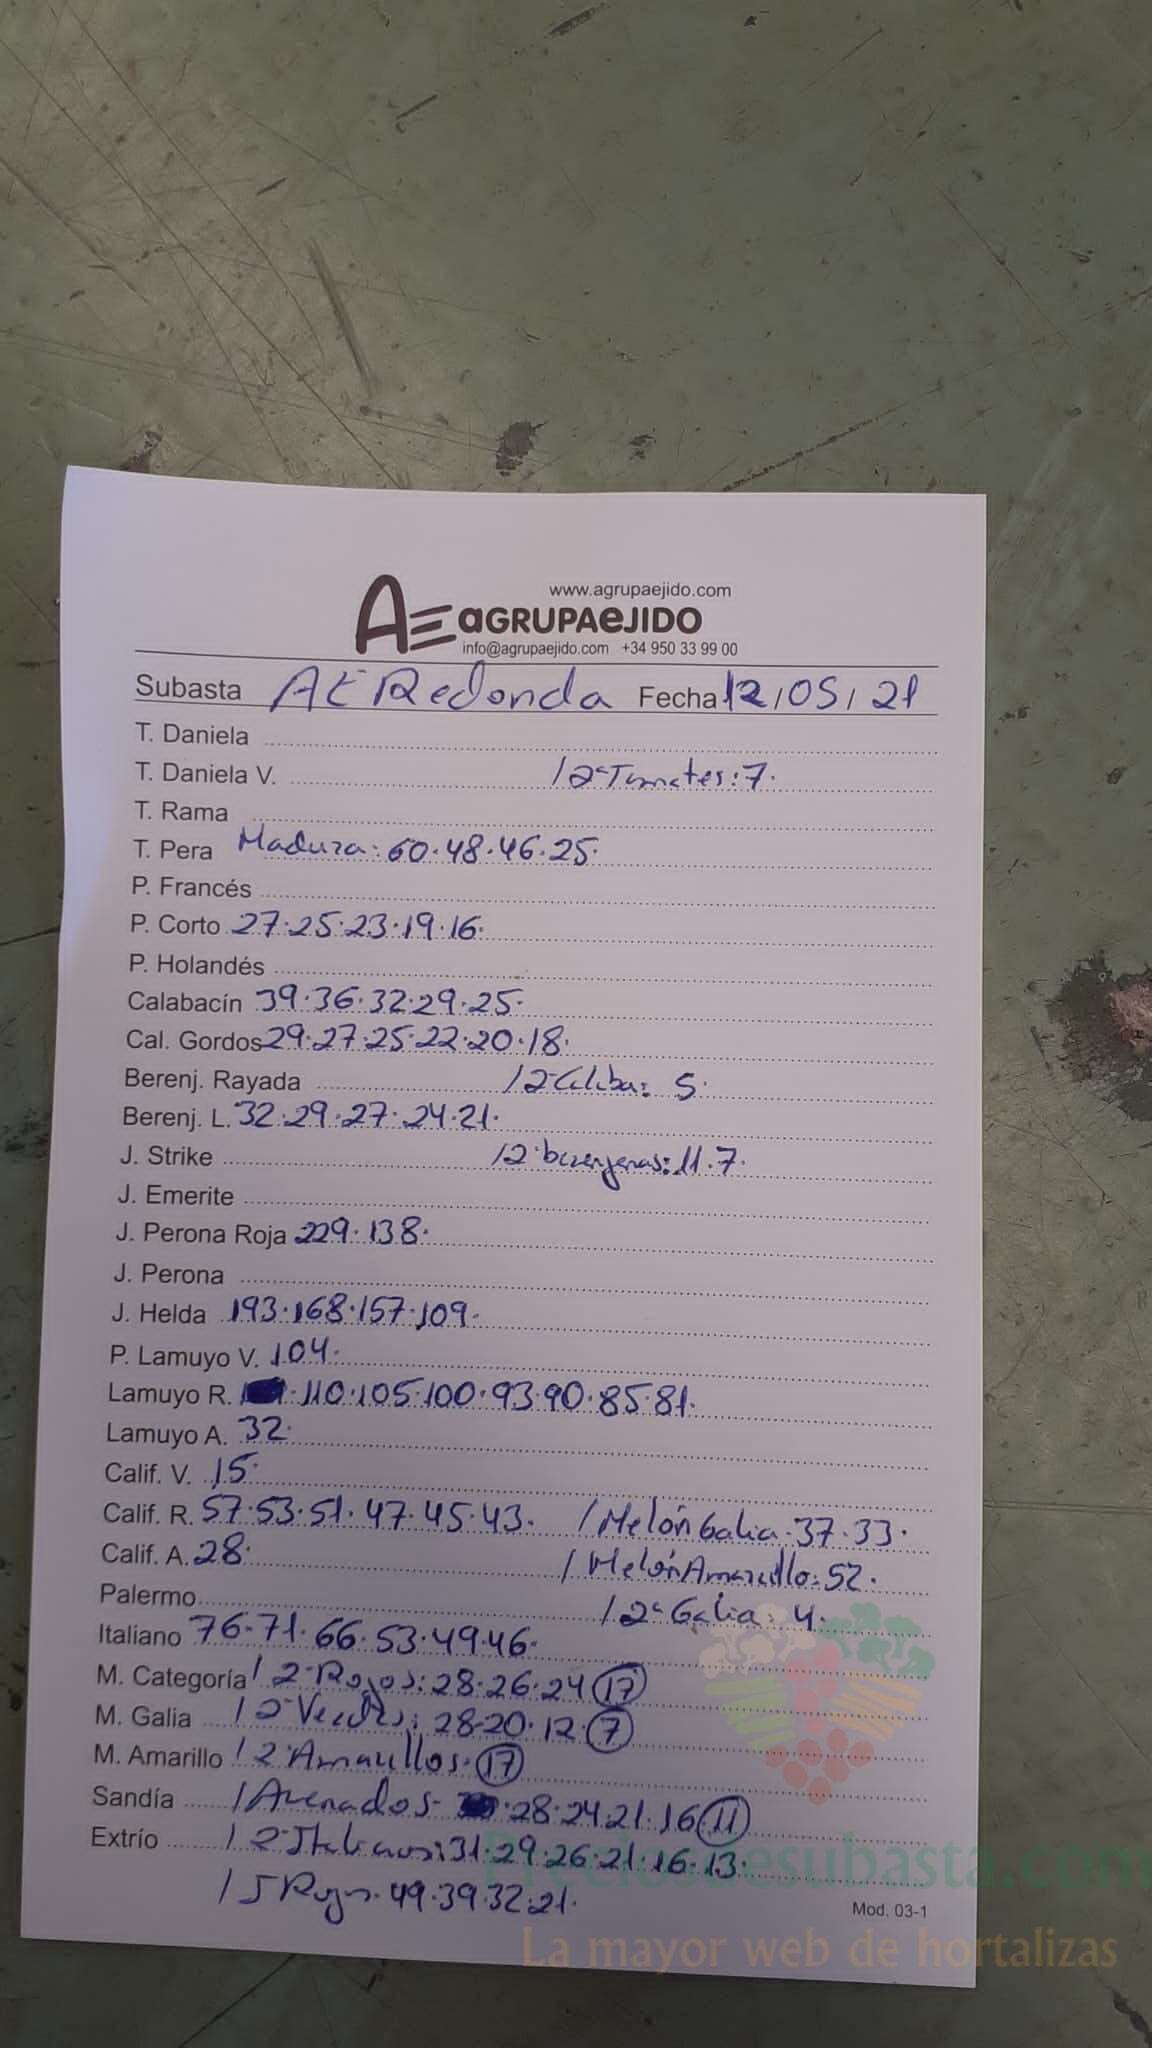 www.agrupaejido.com
AE aGRUPAeJIDO
info@agrupaejido.com +34 950 33 99 00
Subasta AE Redonda Fecha 12/05/21
T. Daniela
T. Daniela V. / 2ª Tomates: 7.
T. Rama
T. Pera Madura: 60.48.46.25.
P. Francés
P. Corto 27.25.23.19.16.
P. Holandés
Calabacín 39.36.32.29.25.
Cal. Gordos 29.27.25.22.20.18.
Berenj. Rayada / 2ª Calaba: 5.
Berenj. L. 32.29.27.24.21.
J. Strike / 2ª berenjenas: 11.7.
J. Emerite
J. Perona Roja 229.138.
J. Perona
J. Helda 193.168.157.109.
P. Lamuyo V. 104.
Lamuyo R. .110.105.100.93.90.85.81.
Lamuyo A. 32.
Calif. V. 15.
Calif. R. 57.53.51.47.45.43. / Melón Galia. 37.33.
Calif. A. 28. / Melón Amarillo: 52.
Palermo / 2ª Galia: 4.
Italiano 76.71.66.53.49.46.
M. Categoría / 2ª Rojos: 28.26.24 (17)
M. Galia / 2ª Verdes: 28-20.12.(7)
M. Amarillo / 2ª Amarillos. (17)
Sandía / Asurcados- .28.24.21.16 (11)
Extrío / 2ª Italianos: 31.29.26.21.16.13.
/ J Rojo. 49.39.32.21.
Mod. 03-1
Preciosdesubasta.com
La mayor web de hortalizas